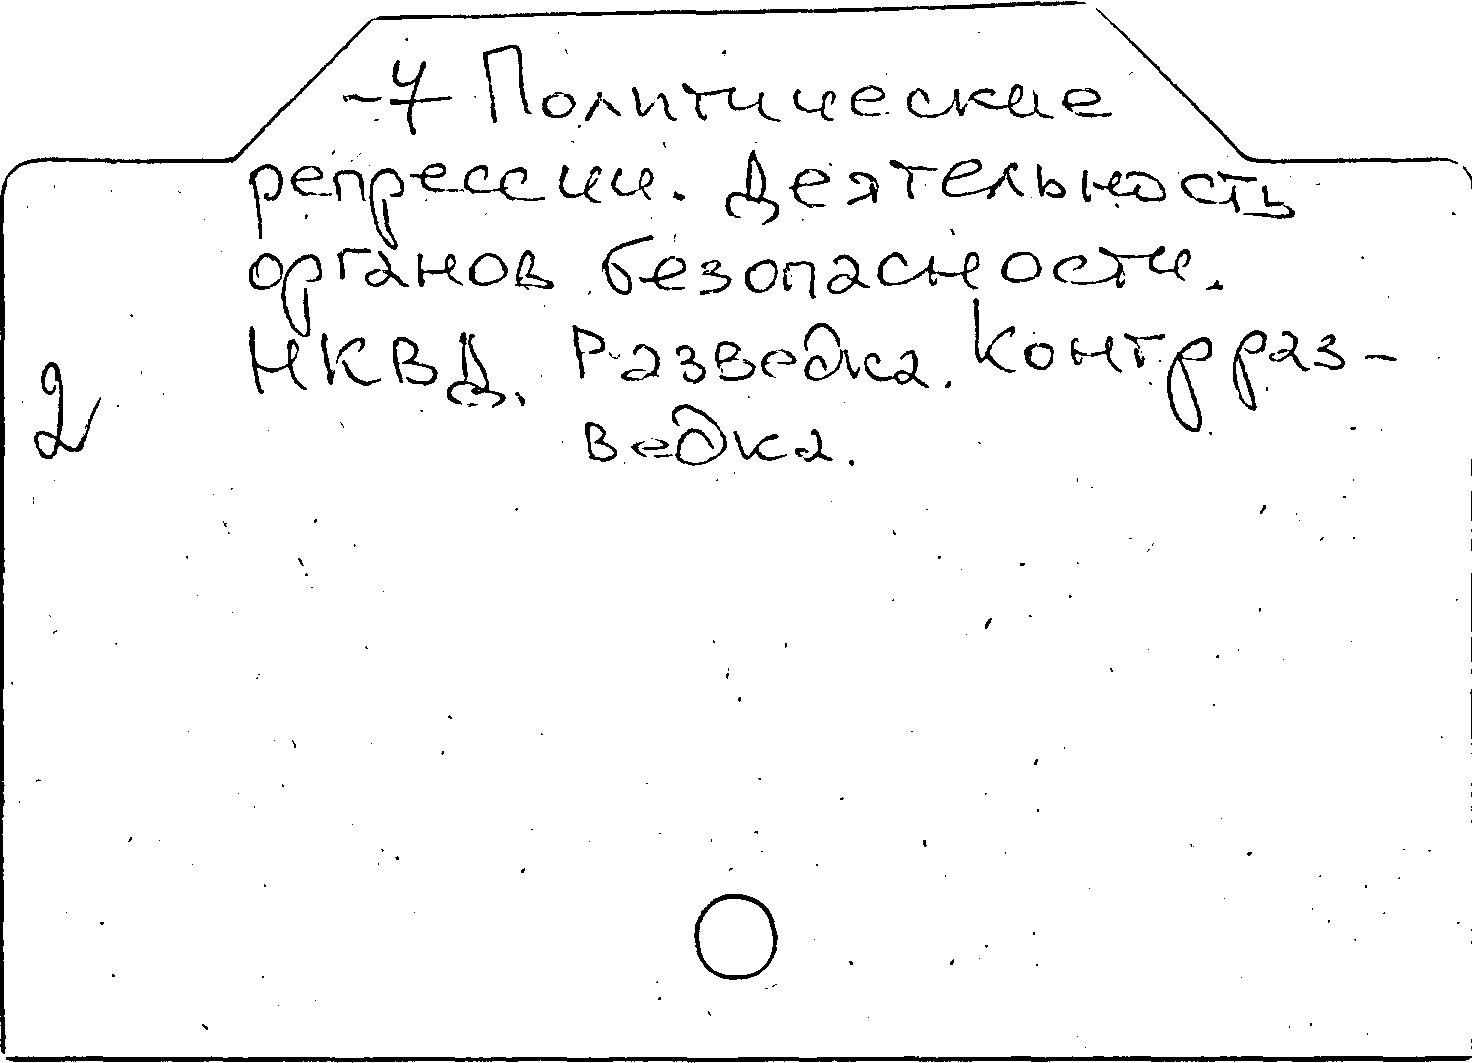 -7 Политические
репрессии. Деятельность
органов безопасности.
НКВД. Разведка. Контрраз-
ведка.
2